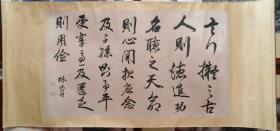 言行擬之古
人則德進功
名聽之天命
則心閒報應念
及子孫則事平
受享慮及
則用儉 林